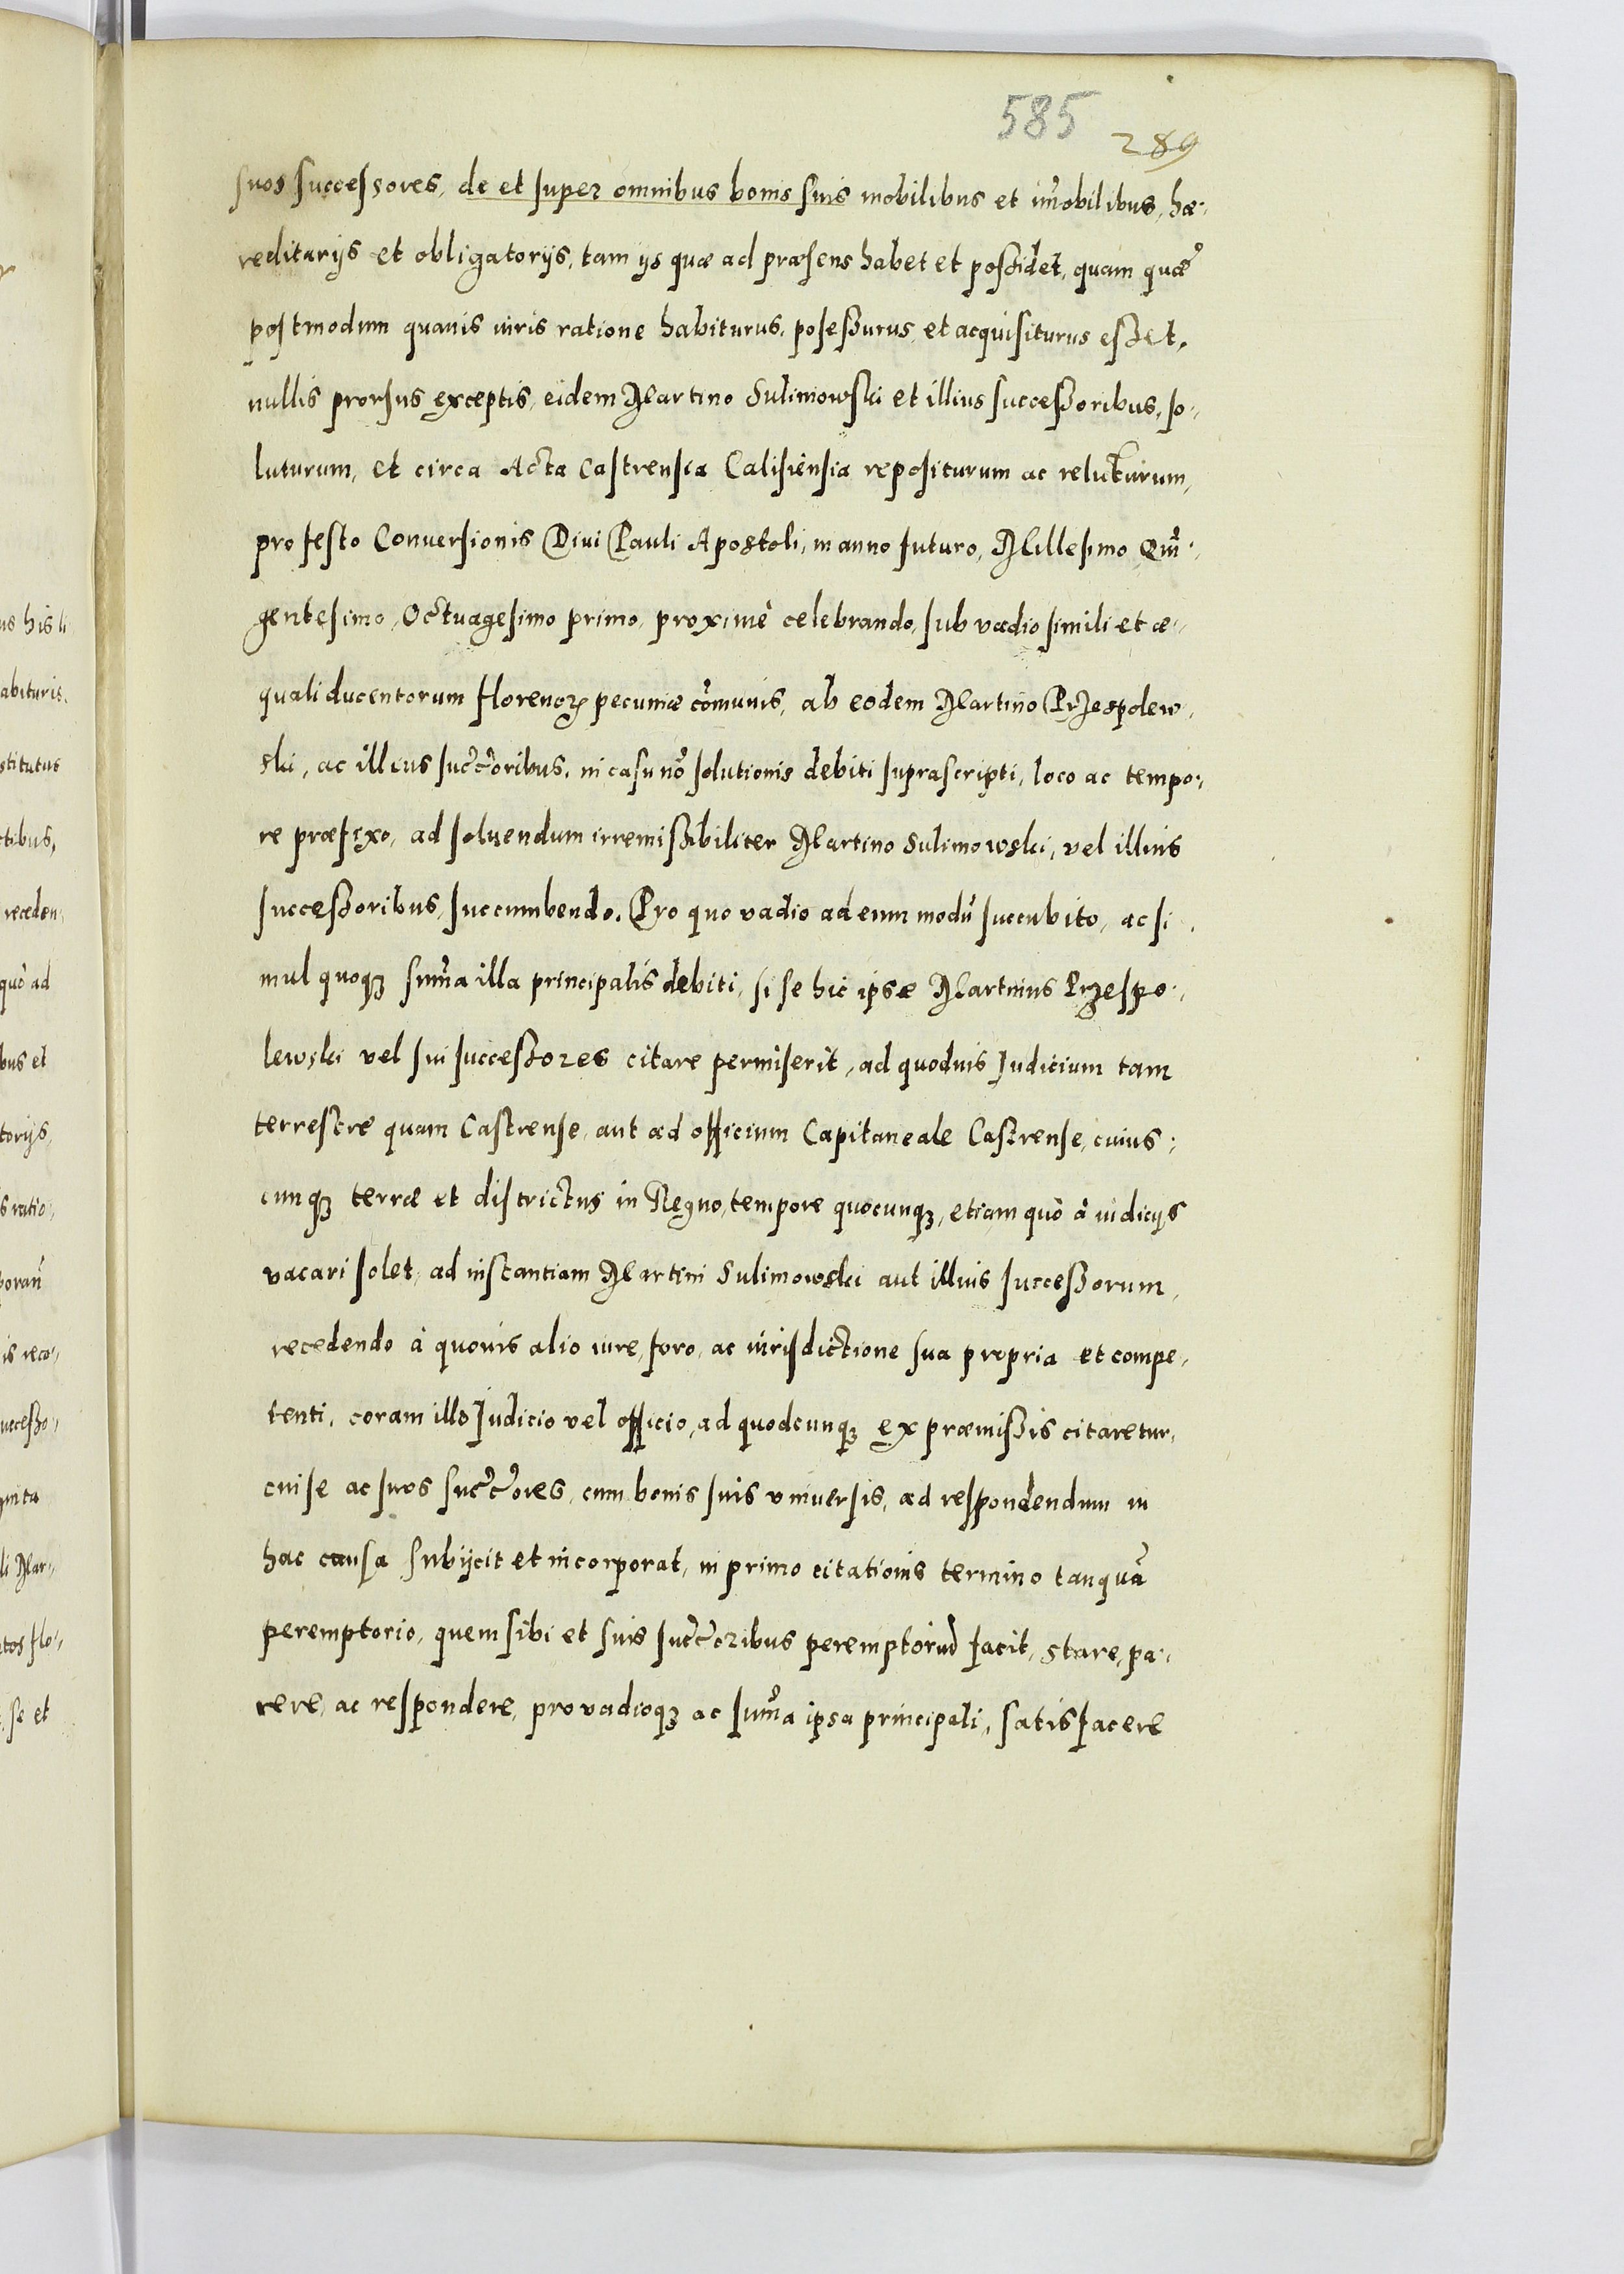 585
289
suos successores, de et super omnibus bonis suis mobilibus et im̃obilibus, hæ-
reditarijs et obligatorijs, tam ijs quæ ad præsens habet et possidet, quam quæ
postmodum quauis iuris ratione habiturus, posessurus, et acquisiturus esset,
nullis prorsus exceptis, eidem Martino Sulimowski et illius successoribus, so-
luturum, et circa Acta Castrensia Calisiensia repositurum ac reluiturum,
pro festo Conuersionis Diui Pauli Apostoli, in anno futuro, Millesimo Quin̄-
gentesimo, Octuagesimo primo, proximè celebrando, sub vadio simili et æ-
quali ducentorum florenoꝝ pecuniæ co͠munis, ab eodem Martino Przespolew-
ski, ac illius succ̃oribus, in casu no͠ solutionis debiti suprascripti, loco ac tempo-
re præfixo, ad soluendum irremissibiliter Martino Sulimowski, vel illius
successoribus, succumbendo. Pro quo vadio ad eum modũ succubito, ac si-
mul quoqꝫ sum̃a illa principalis debiti, si se hic ipse Martinus Przespo-
lewski vel sui successores citare permiserit, ad quoduis Iudicium tam
terrestre quam Castrense, aut ad officium Capitaneale Castrense, cuius-
cunqꝫ terræ et districtus in Regno, tempore quocunqꝫ, etiam quò à iudicijs
vacari solet, ad instantiam Martini Sulimowski aut illius successorum,
recedendo à quouis alio iure, foro, ac iurisdictione sua propria et compe-
tenti, coram illo Iudicio vel officio, ad quodcunqꝫ ex præmissis citaretur,
cui se ac suos succ̃ores, cum bonis suis vniuersis, ad respondendum in
hac causa subijcit et incorporat, in primo citationis termino tanquã
peremptorio, quem sibi et suis succ̃oribus peremptoriũ facit, stare, pa-
rere, ac respondere, pro vadioqꝫ ac sum̃a ipsa principali, satisfacere